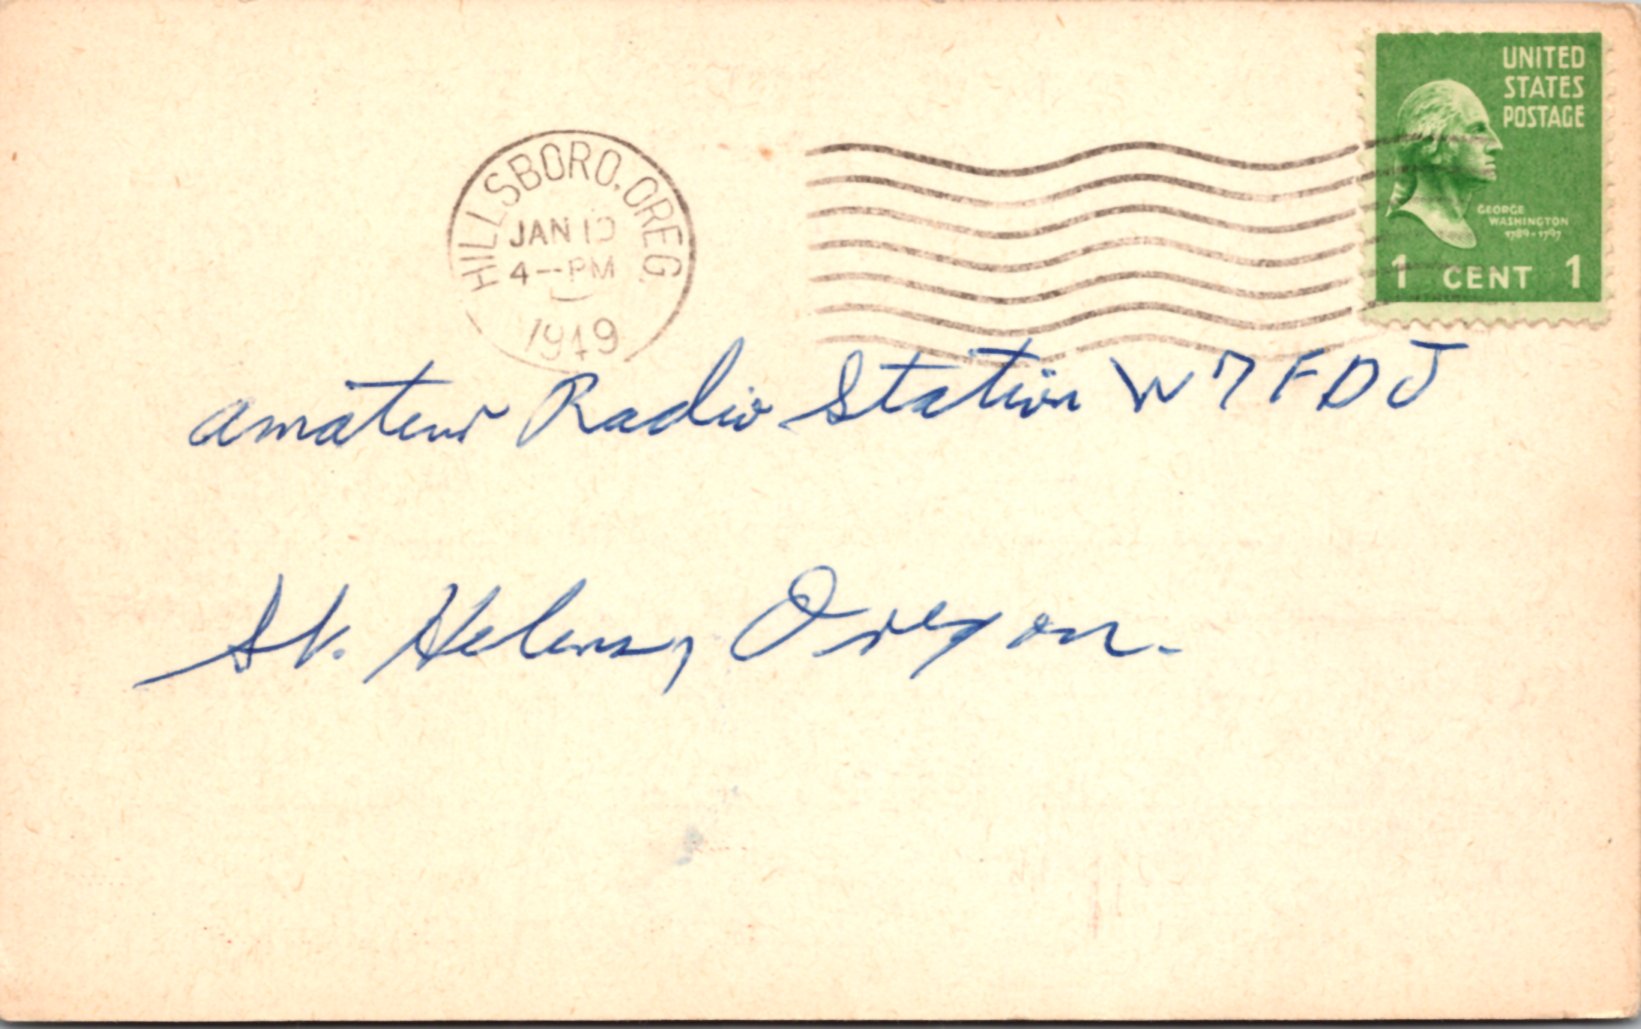 UNITED
STATES
POSTAGE
GEORGE
WASHINGTON
1789-1797
1 CENT 1
HILLSBORO, OREG.
JAN
4--PM
1949
Amateur Radio Station W7FDJ
St. Helens, Oregon.